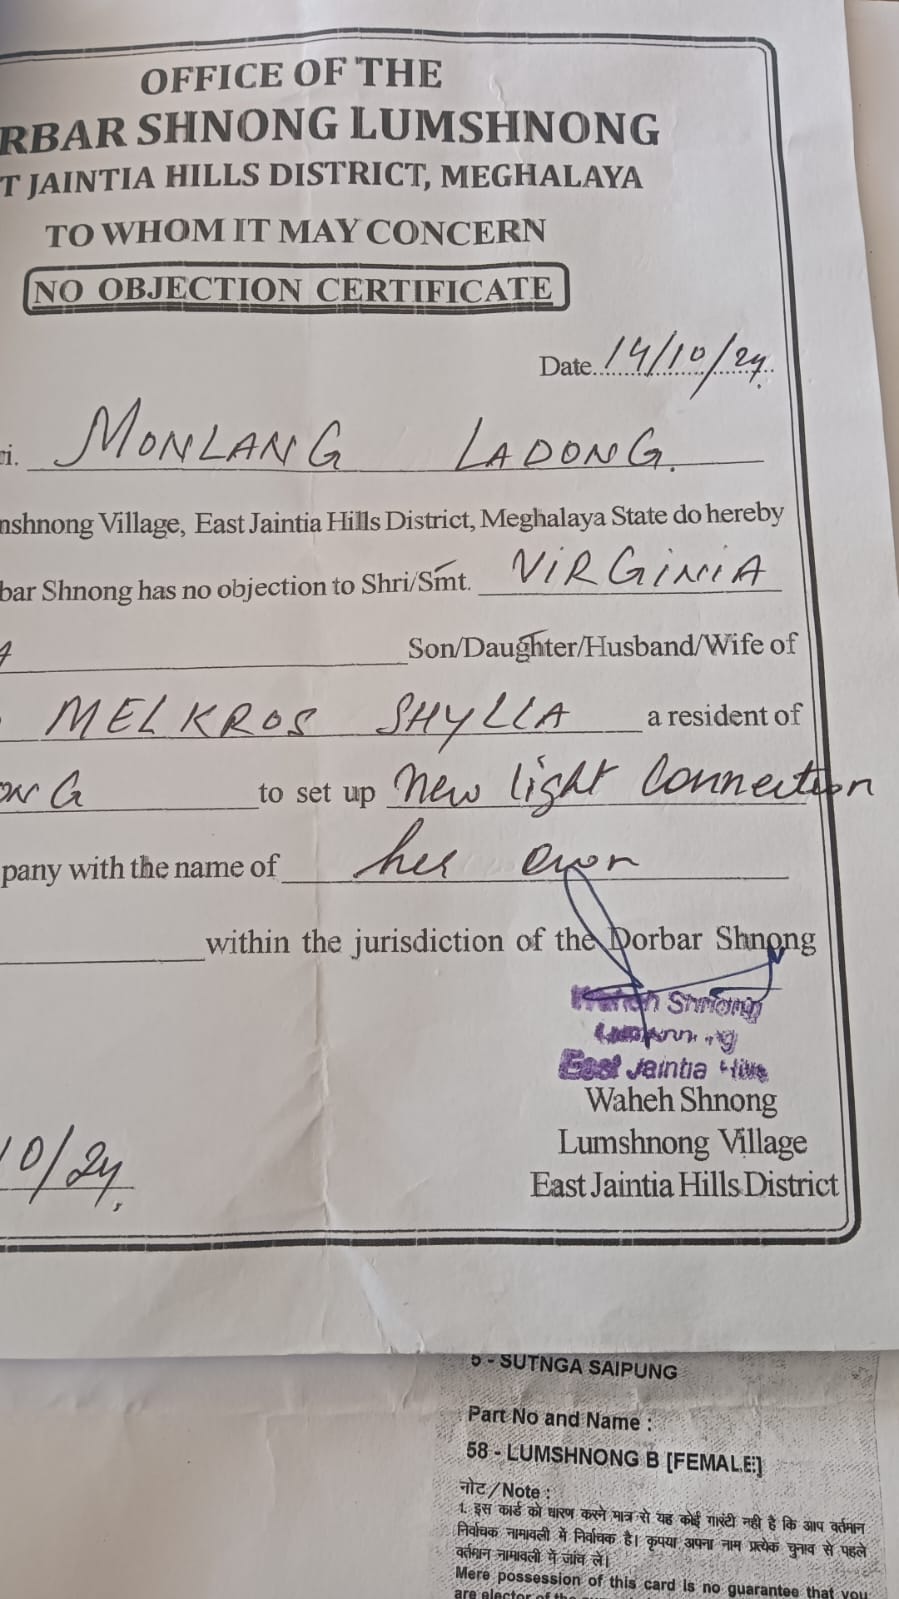 OFFICE OF THE
RBAR SHNONG LUMSHNONG
T JAINTIA HILLS DISTRICT, MEGHALAYA
TO WHOM IT MAY CONCERN
NO OBJECTION CERTIFICATE
Date 14/10/24.
ri. MONLANG LADONG.
nshnong Village, East Jaintia Hills District, Meghalaya State do hereby
bar Shnong has no objection to Shri/Smt. VIRGINIA
Son/Daughter/Husband/Wife of
MELKROS SHYLLA a resident of
ONG to set up New light Connection
pany with the name of her own
within the jurisdiction of the Dorbar Shnong
Waheh Shnong
East Jaintia Hills
Waheh Shnong
Lumshnong Village
10/24.
East Jaintia Hills District
5 - SUTNGA SAIPUNG
Part No and Name :
58 - LUMSHNONG B [FEMALE]
नोट/Note :
1. इस कार्ड को धारण करने मात्र से यह कोई गारंटी नही है कि आप वर्तमान
निर्वाचक नामावली में निर्वाचक है। कृपया अपना नाम प्रत्येक चुनाव से पहले
वर्तमान नामावली में जांच लें।
Mere possession of this card is no guarantee that you
are elector of the